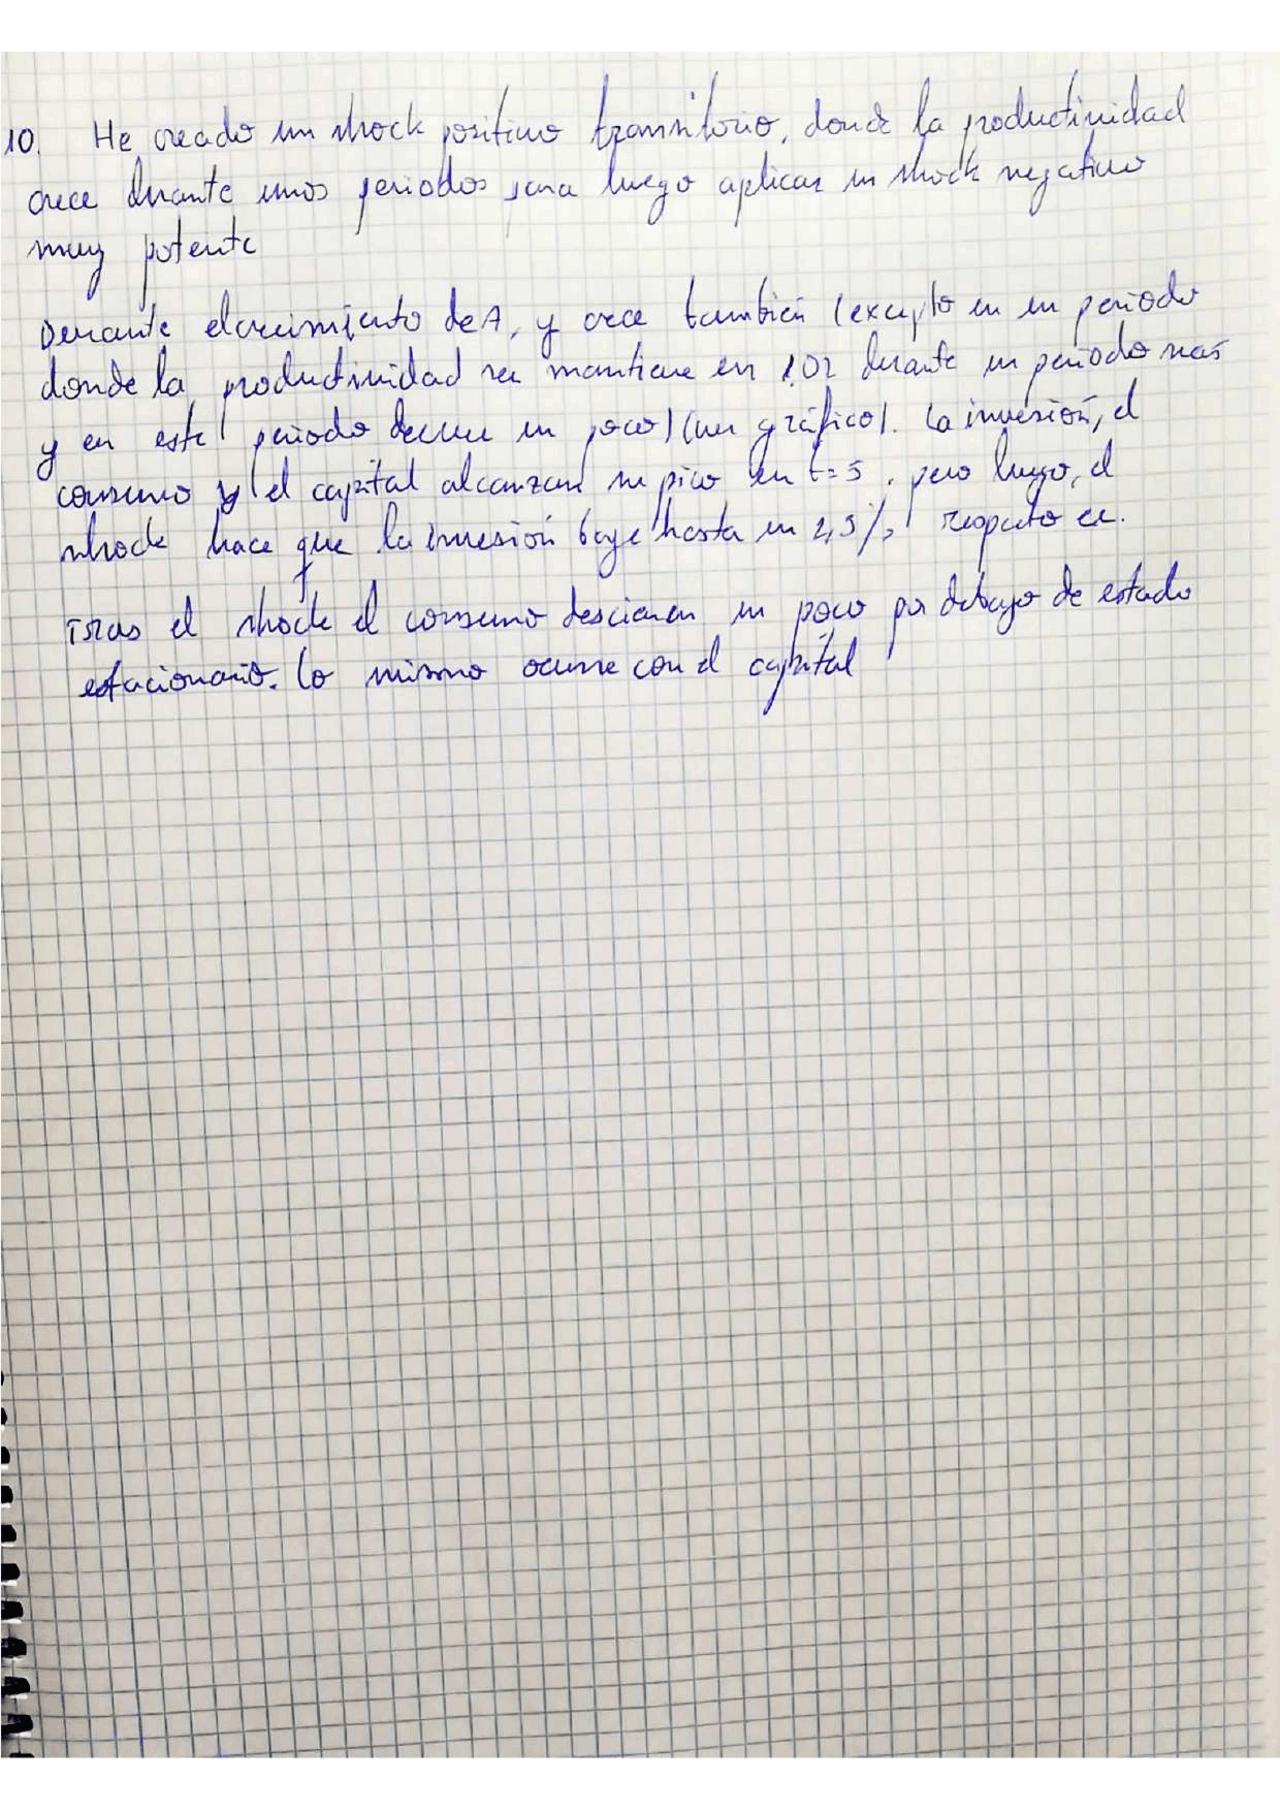 10. He creado un shock positivo transitorio, donde la productividad
crece durante unos periodos para luego aplicar un shock negativo
muy potente
Durante el crecimiento de A, y crece también (excepto en un periodo
donde la productividad se mantiene en 1,02 durante un periodo más
y en este periodo decrece un poco) (ver gráfico). La inversión, el
consumo y el capital alcanzan su pico en t=5, pero luego, el
shock hace que la inversión baje hasta un 2,5% respecto ee.
Tras el shock el consumo desciende un poco por debajo de estado
estacionario. Lo mismo ocurre con el capital